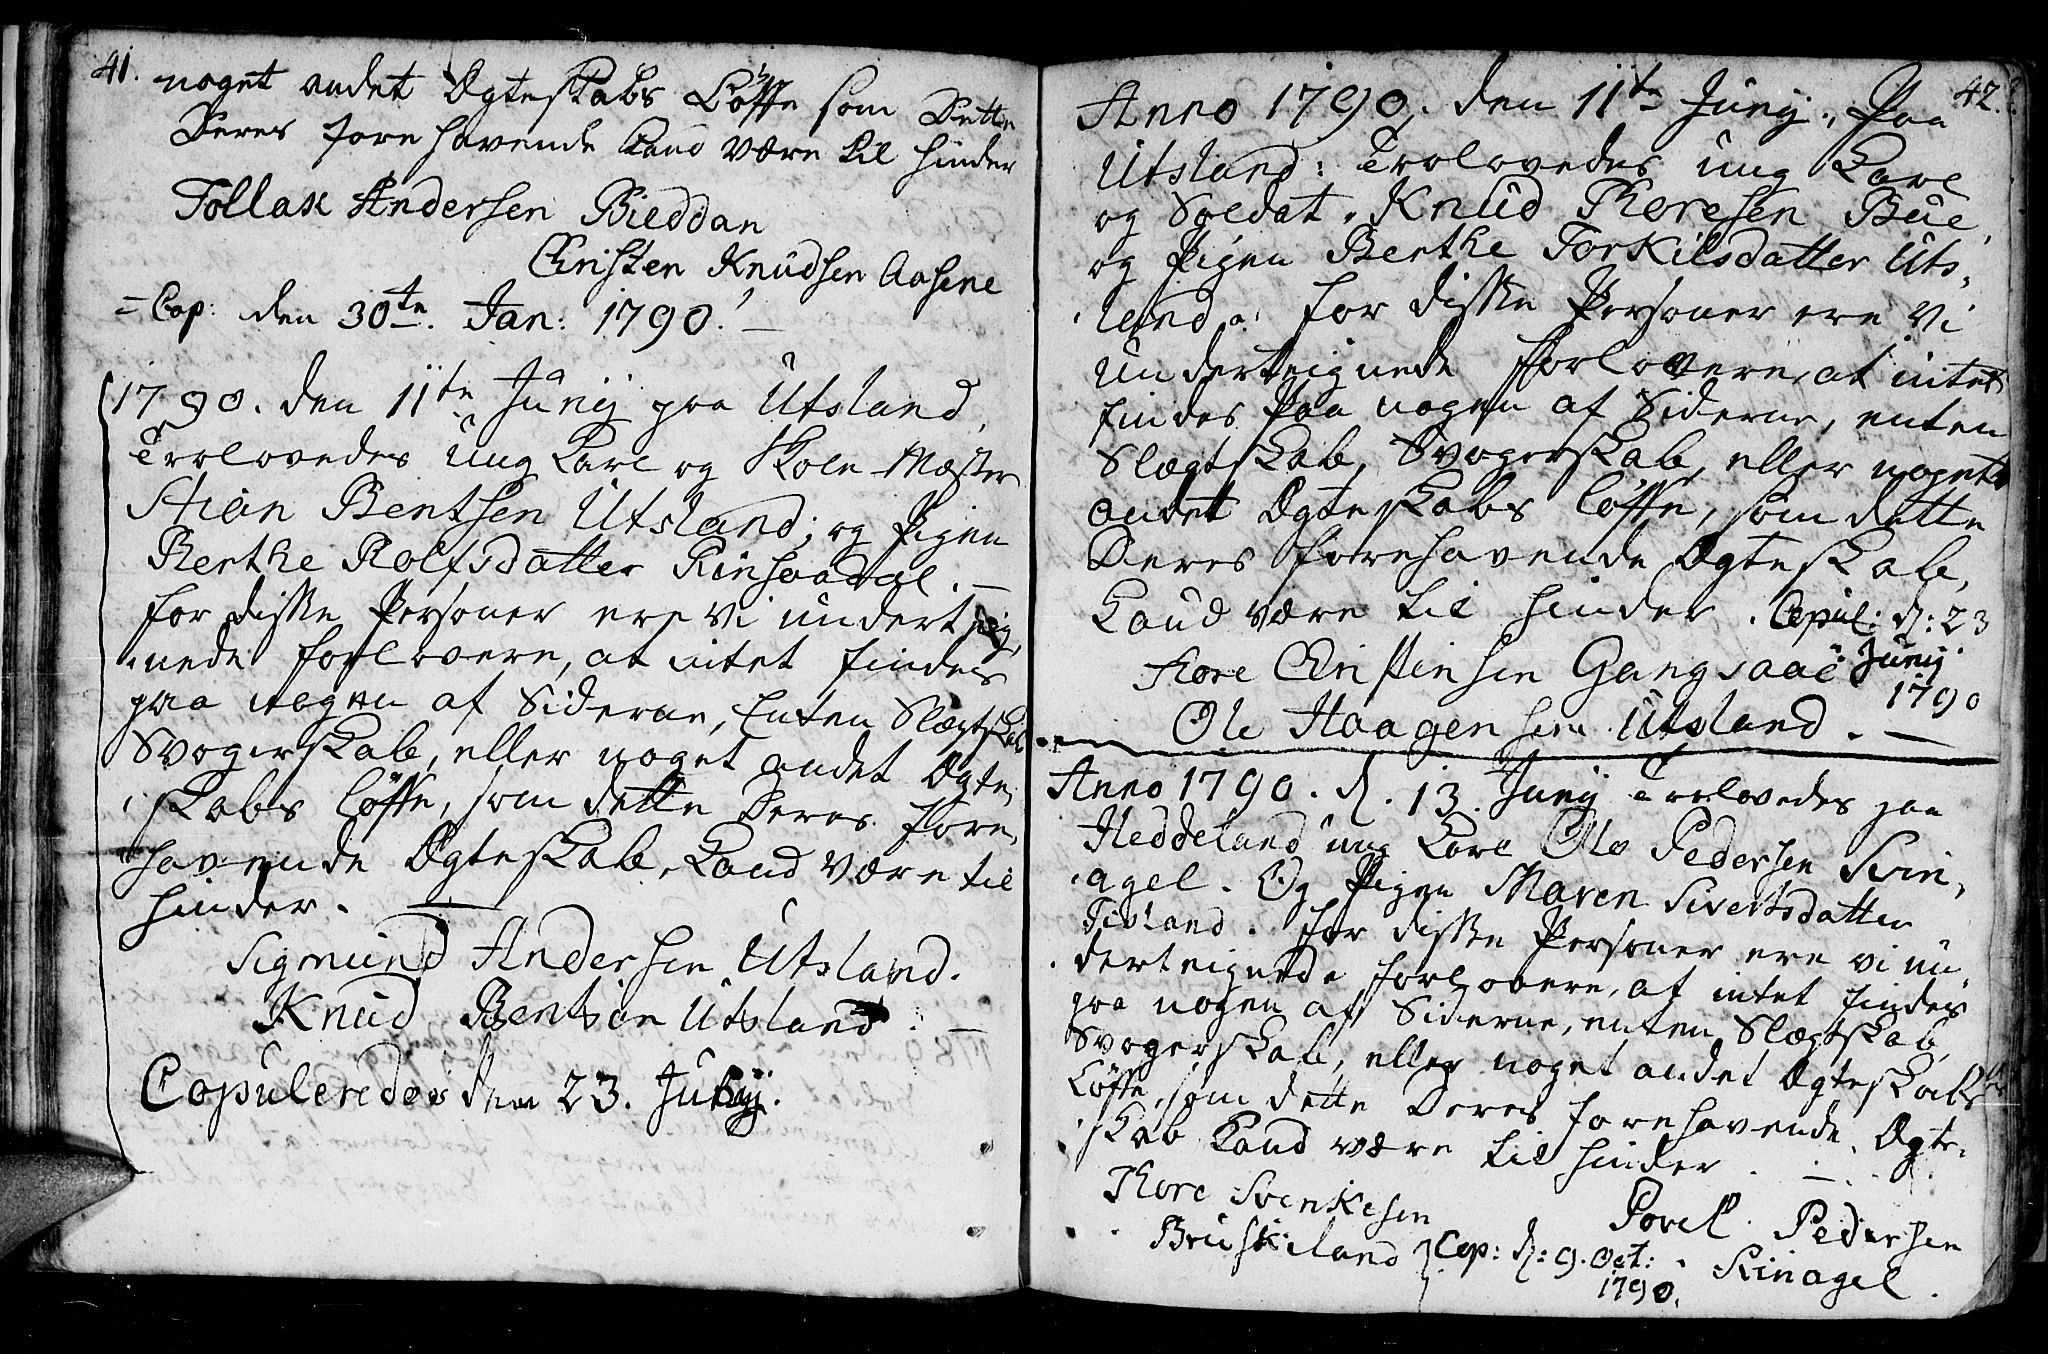 41.
noget andet Ægteskabs Løffte som Dette
Deres forehavende kand være til hinder
Tollak Andersen Bieddan
Christen Knudsen Aasene
= Cop: den 30te. Jan: 1790. –
1790. den 11te Junij paa Utsland,
Trolovedes ung Karl og Skole-Mester
Stian Bentsen Utsland; og Pigen
Berthe Rolfsdatter Rinsaadal. –
for disse Personer ere vi underteig,
nede forlovere, at intet findes
paa nogen af Siderne, Enten Slægtskab
Svogerskab, eller noget andet Ægte,
skabs løffte, som dette Deres fore,
havende Ægteskab, kand være til
hinder. –
Sigmund Andersen Utsland.
Knud Bentsen Utsland. –
Copuleredes den 23. Junij.
42.
Anno 1790. den 11te Junij, Paa
Utsland: Trolovedes ung Karl
og Soldat, Knud Thoresen Bue,
og Pigen Berthe Torkilsdatter Uts,
land. for disse Personer ere vi
underteignede forlovere, at intet
findes Paa nogen af Siderne, enten
Slægtskab, Svogerskab, eller noget
andet Ægteskabs løffte, som dette
Deres forehavende Ægteskab,
kand være til hinder. Copul: d: 23
Junij
1790
Thore Christensen
Ole Haagensen Utsland. –
Anno 1790. d. 13. Junij Trolovedes paa
Heddeland ung Karl Ole Pedersen Skin,
agel. Og Pigen Maren Sivertsdatter
Tisland. for disse Personer ere vi un
derteignede forlovere, at intet findes
paa nogen af Siderne, enten Slægtskab,
Svogerskab, eller noget andet Ægteskabs
Løffte, som dette Deres forehavende Ægte,
skab kand være til hinder. –
Thore Svenkesen
Brusketland
Povel Pedersen
Skinagel.
Cop: d: 9. Oct:
1790.